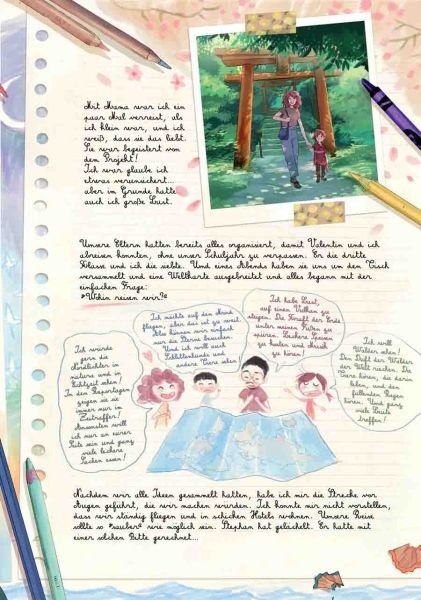 Mit Mama war ich ein
paar Mal verreist, als
ich klein war, und ich
weiß, dass sie das liebt.
Sie war begeistert von
dem Projekt!
Ich war glaube ich
etwas verunsichert...
aber im Grunde hatte
auch ich große Lust.
Unsere Eltern hatten bereits alles organisiert, damit Valentin und ich
abreisen konnten, ohne unser Schuljahr zu verpassen. Er die dritte
Klasse und ich die siebte. Und eines Abends haben sie uns um den Tisch
versammelt und eine Weltkarte ausgebreitet und alles begann mit der
einfachen Frage:
»Wohin reisen wir?«
Ich würde
gern die
Nordlichter in
natura und in
Echtzeit sehen!
In den Reportagen
zeigen sie sie
immer nur im
Zeitraffer!
Ansonsten will
ich nur an eurer
Seite sein und ganz
viele leckere
Sachen essen!
Ich möchte auf den Mond
fliegen, aber das ist zu weit.
Also können wir einfach
nur die Sterne besuchen.
Und ich will auch
Schlittenhunde und
andere Tiere sehen!
Ich habe Lust,
auf einen Vulkan zu
steigen. Die Kraft der Erde
unter meinen Füßen zu
spüren. Leckere Speisen
zu kosten und Musik
zu hören!
Ich will
Wälder sehen!
Den Duft der Wälder
der Welt riechen. Die
Tiere hören, die darin
leben, und den
fallenden Regen
hören. Und ganz
viele Leute
treffen!
Nachdem wir alle Ideen gesammelt hatten, habe ich mir die Strecke vor
Augen geführt, die wir machen würden. Ich konnte mir nicht vorstellen,
dass wir ständig fliegen und in schicken Hotels wohnen. Unsere Reise
sollte so »sauber« wie möglich sein. Stephan hat gelächelt. Er hatte mit
einer solchen Bitte gerechnet...